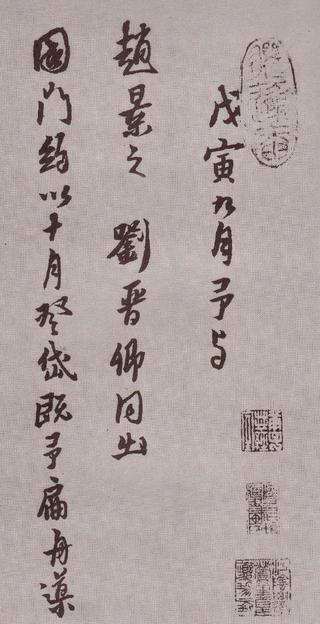 戊寅九月予与
趙景之 劉晉卿同出
國門約以十月登岱既予扁舟渠